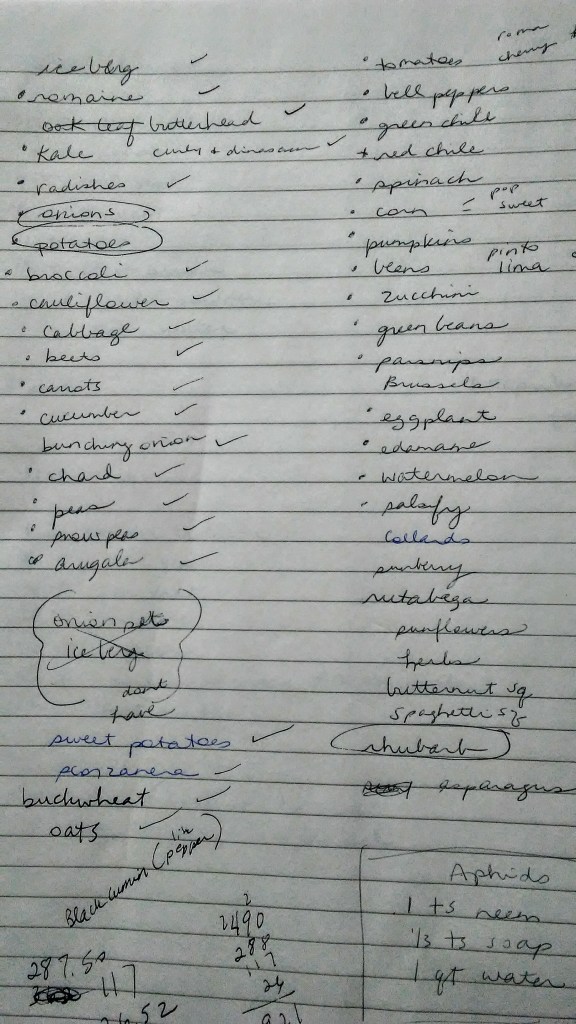 iceberg ✓
• romaine ✓
oak leaf butterhead ✓
• Kale curly + dinosaur ✓
• radishes ✓
• onions
• potatoes
• broccoli ✓
• cauliflower ✓
• cabbage ✓
• beets ✓
• carrots ✓
• cucumber ✓
bunching onion ✓
• chard ✓
• peas ✓
• snow peas ✓
• arugala ✓
onion
iceberg
dont
have
sweet potatoes ✓
scorzanera ✓
buckwheat ✓
oats ✓
Black cumin (like pepper)
287.50
117
2
2490
288
117
24
921
roma
• tomatoes cherry
• bell peppers
• green chile
+ red chile
• spinach
pop
• corn = sweet
• pumpkins
pinto
• beens lima
• zucchini
• green beans
• parsnips
Brussels
• eggplant
• edamame
• watermelon
• salsify
Collards
sunberry
rutabega
sunflowers
herbs
butternut sq
spaghetti sq
rhubarb
asparagus
Aphids
1 ts neem
1/3 ts soap
1 qt water